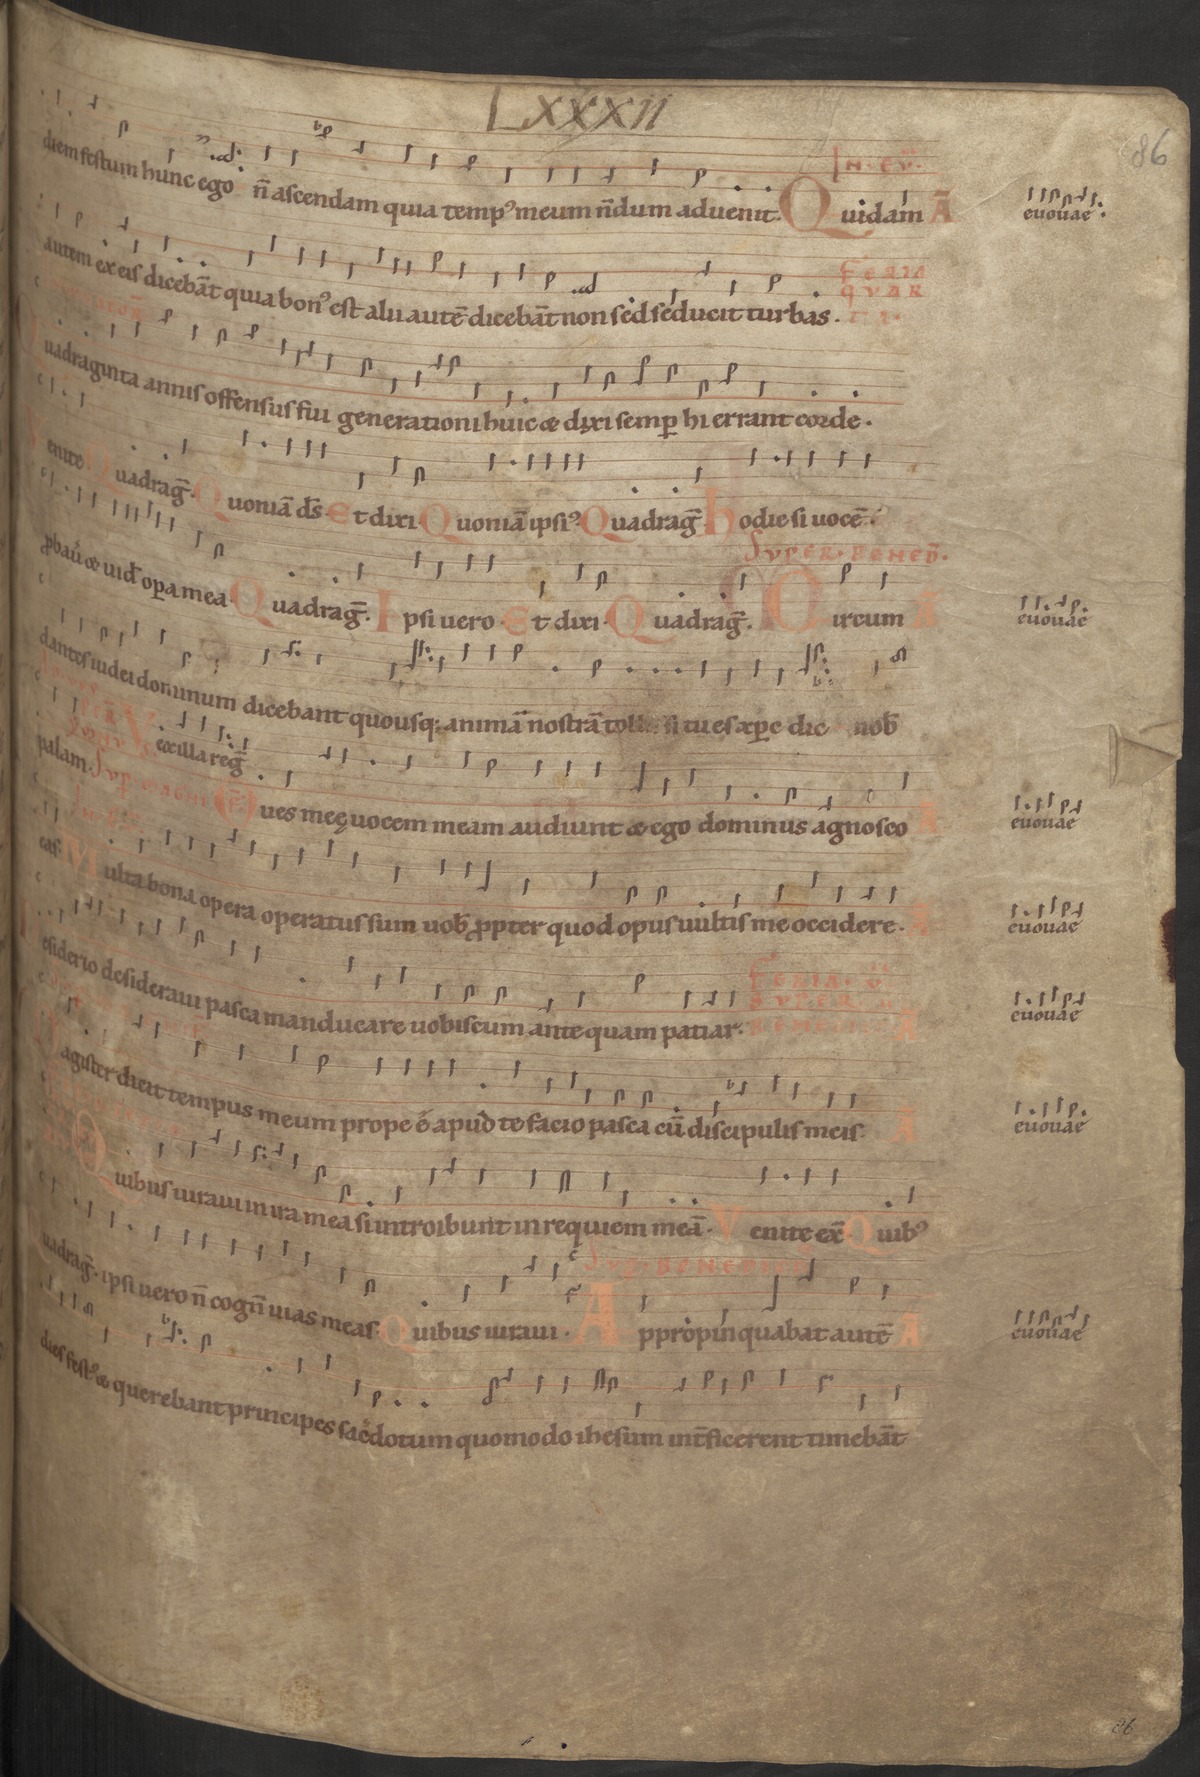 LXXXII
86
diem festum hunc ego n̄ ascendam quia temp⁹ meum n̄dum aduenit. Quidam Ā
IN·EV̄·
euouae
autem ex eis dicebāt quia bon⁹ est alii autē dicebāt non sed seducit turbas.
FERIA
QVAR
uadraginta annis offensus fui generationi huic æ dixi semp̄ hi errant corde.
enite Quadrag̅. Quoniā ds̄ Et dixi Quoniā ipsi⁹ Quadrag̅. Hodie si uocē.
SVPER·BENED̄·
ꝓbauer̄ æ uider̄ opa mea Quadrag̅. Ipsi uero Et dixi. Quadrag̅. Circum Ā
euouae
dantes iudei dominum dicebant quousq; animā nostrā tollis si tu es xp̄e dic nob̄
exilla reg̅
palam. Oues meę uocem meam audiunt æ ego dominus agnosco A
euouae
eas. Multa bona opera operatus sum uob̄ ꝓpter quod opus uultis me occidere.
euouae
esiderio desideraui pasca manducare uobiscum ante quam patiar. Ā
FERIA·V̄
SVPER
euouae
agister dicit tempus meum prope ē apud te facio pasca cū discipulis meis. A
euouae
Quibus iuraui in ira mea si introibunt in requiem meā. Venite ex̄ Quib⁹
uadrag̅. ipsi uero n̄ cogn̄ uias meas. Quibus iuraui. Appropinquabat autē A
SVP·BENEDICT
euouae
dies fest⁹ æ querebant principes sacdotum quomodo ihesum int̄ficerent timebāt
86